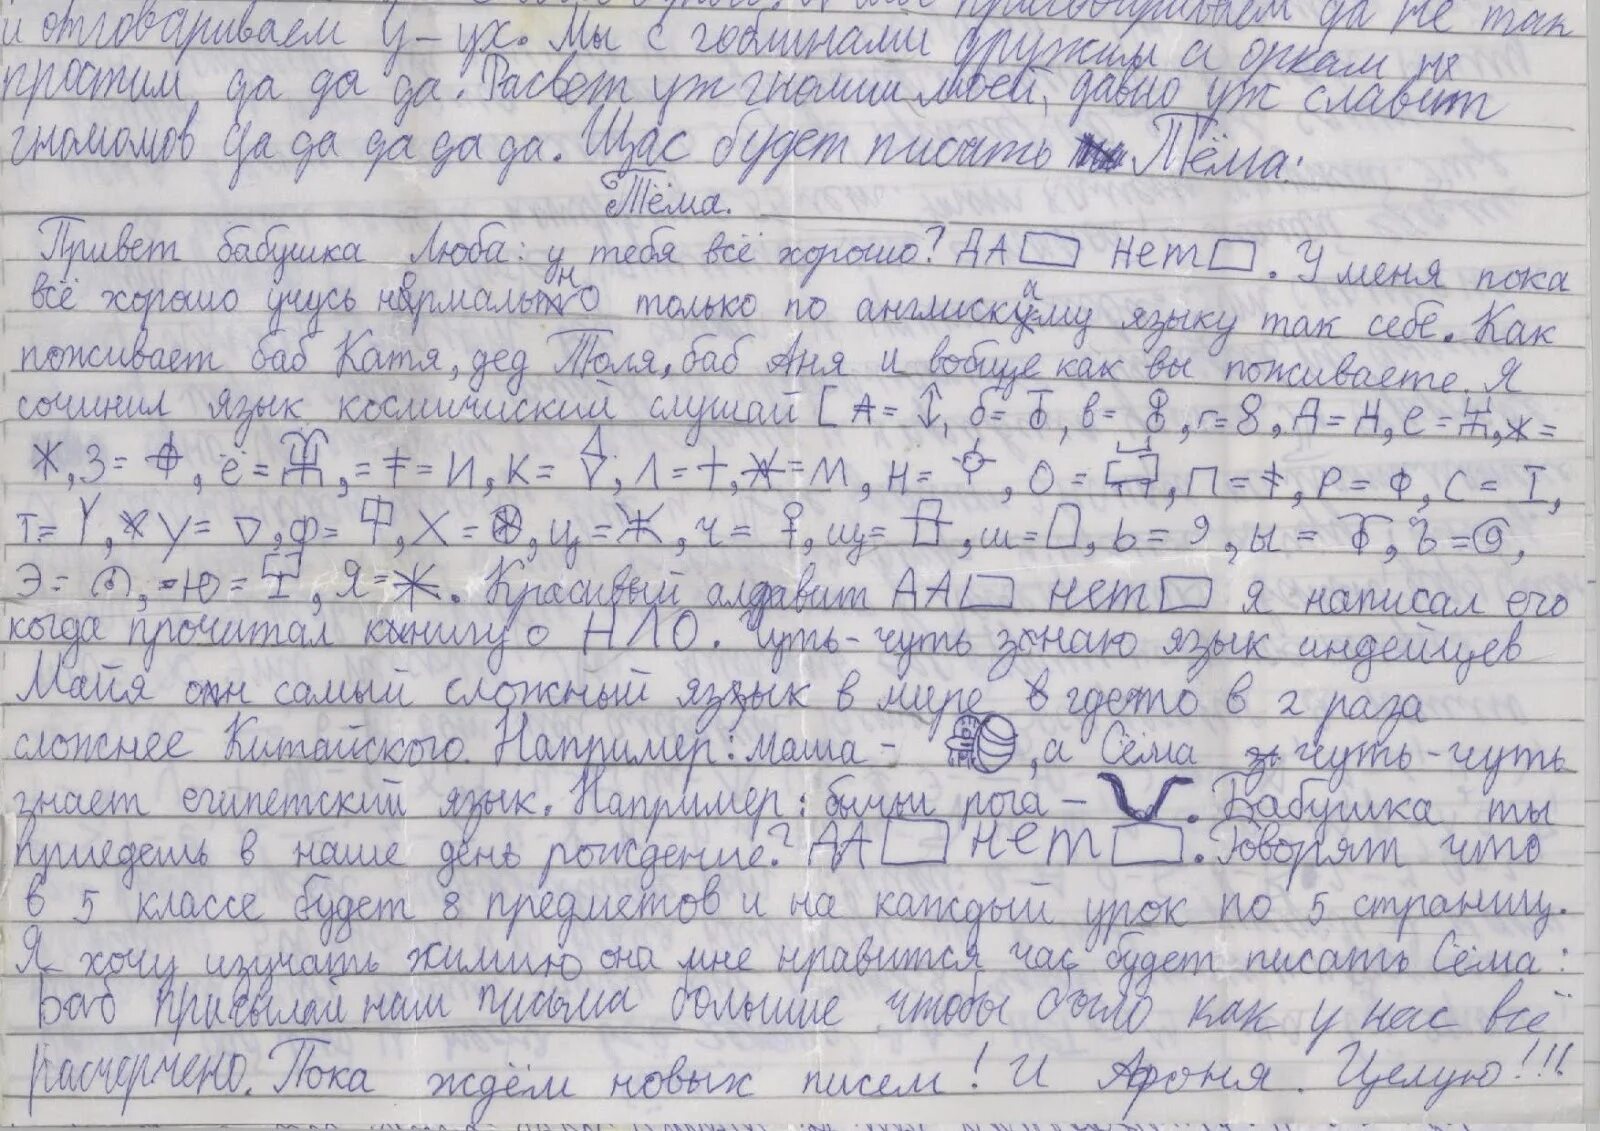 приговариваем да не так
и отговариваем у-ух. Мы с гоблинами дружим а оркам не
простим да да да. Расвет уж гномии моей, давно уж славит
гномомов да да да да да. Щас будет писать Тёма:
Тёма.
Привет бабушка Люба: у тебя всё хорошо? ДА НЕТ . У меня пока
всё хорошо учусь нормально только по английскаму языку так себе. Как
поживает баб Катя, дед Толя, баб Аня и вобще как вы поживаете. Я
сочинил язык космичиский слушай [ А= , б= , в= 8, г=8, Д= , е= , ж=
Ж, З= , ё= , = = И, К= , Л= , = М, Н= , О= , П= , Р= Ф, С= I,
Т= Y, У= ▽, ф= , Х= , ц= Ж, ч= ♀, щ= , ш= , ь= 9, ы= , ъ= ,
Э= , Ю= , Я= Ж. Красивый алфавит ДА НЕТ Я написал его
когда прочитал книгу о НЛО. Чуть-чуть знаю язык индейцев
Майя он самый сложный язык в мире гдето в 2 раза
сложнее Китайского. Например: маша - , а Сёма чуть-чуть
знает египетский язык. Например: бычьи рога - . Бабушка ты
приедешь в наше день рождение? ДА НЕТ . Говорят что
в 5 классе будет 8 предметов и на каждый урок по 5 страниц.
Я хочу изучать химию она мне нравится час будет писать Сёма:
Баб присылай нам письма большие чтобы было как у нас всё
расчерчено. Пока ждём новых писем! И Афоня. Целую!!!